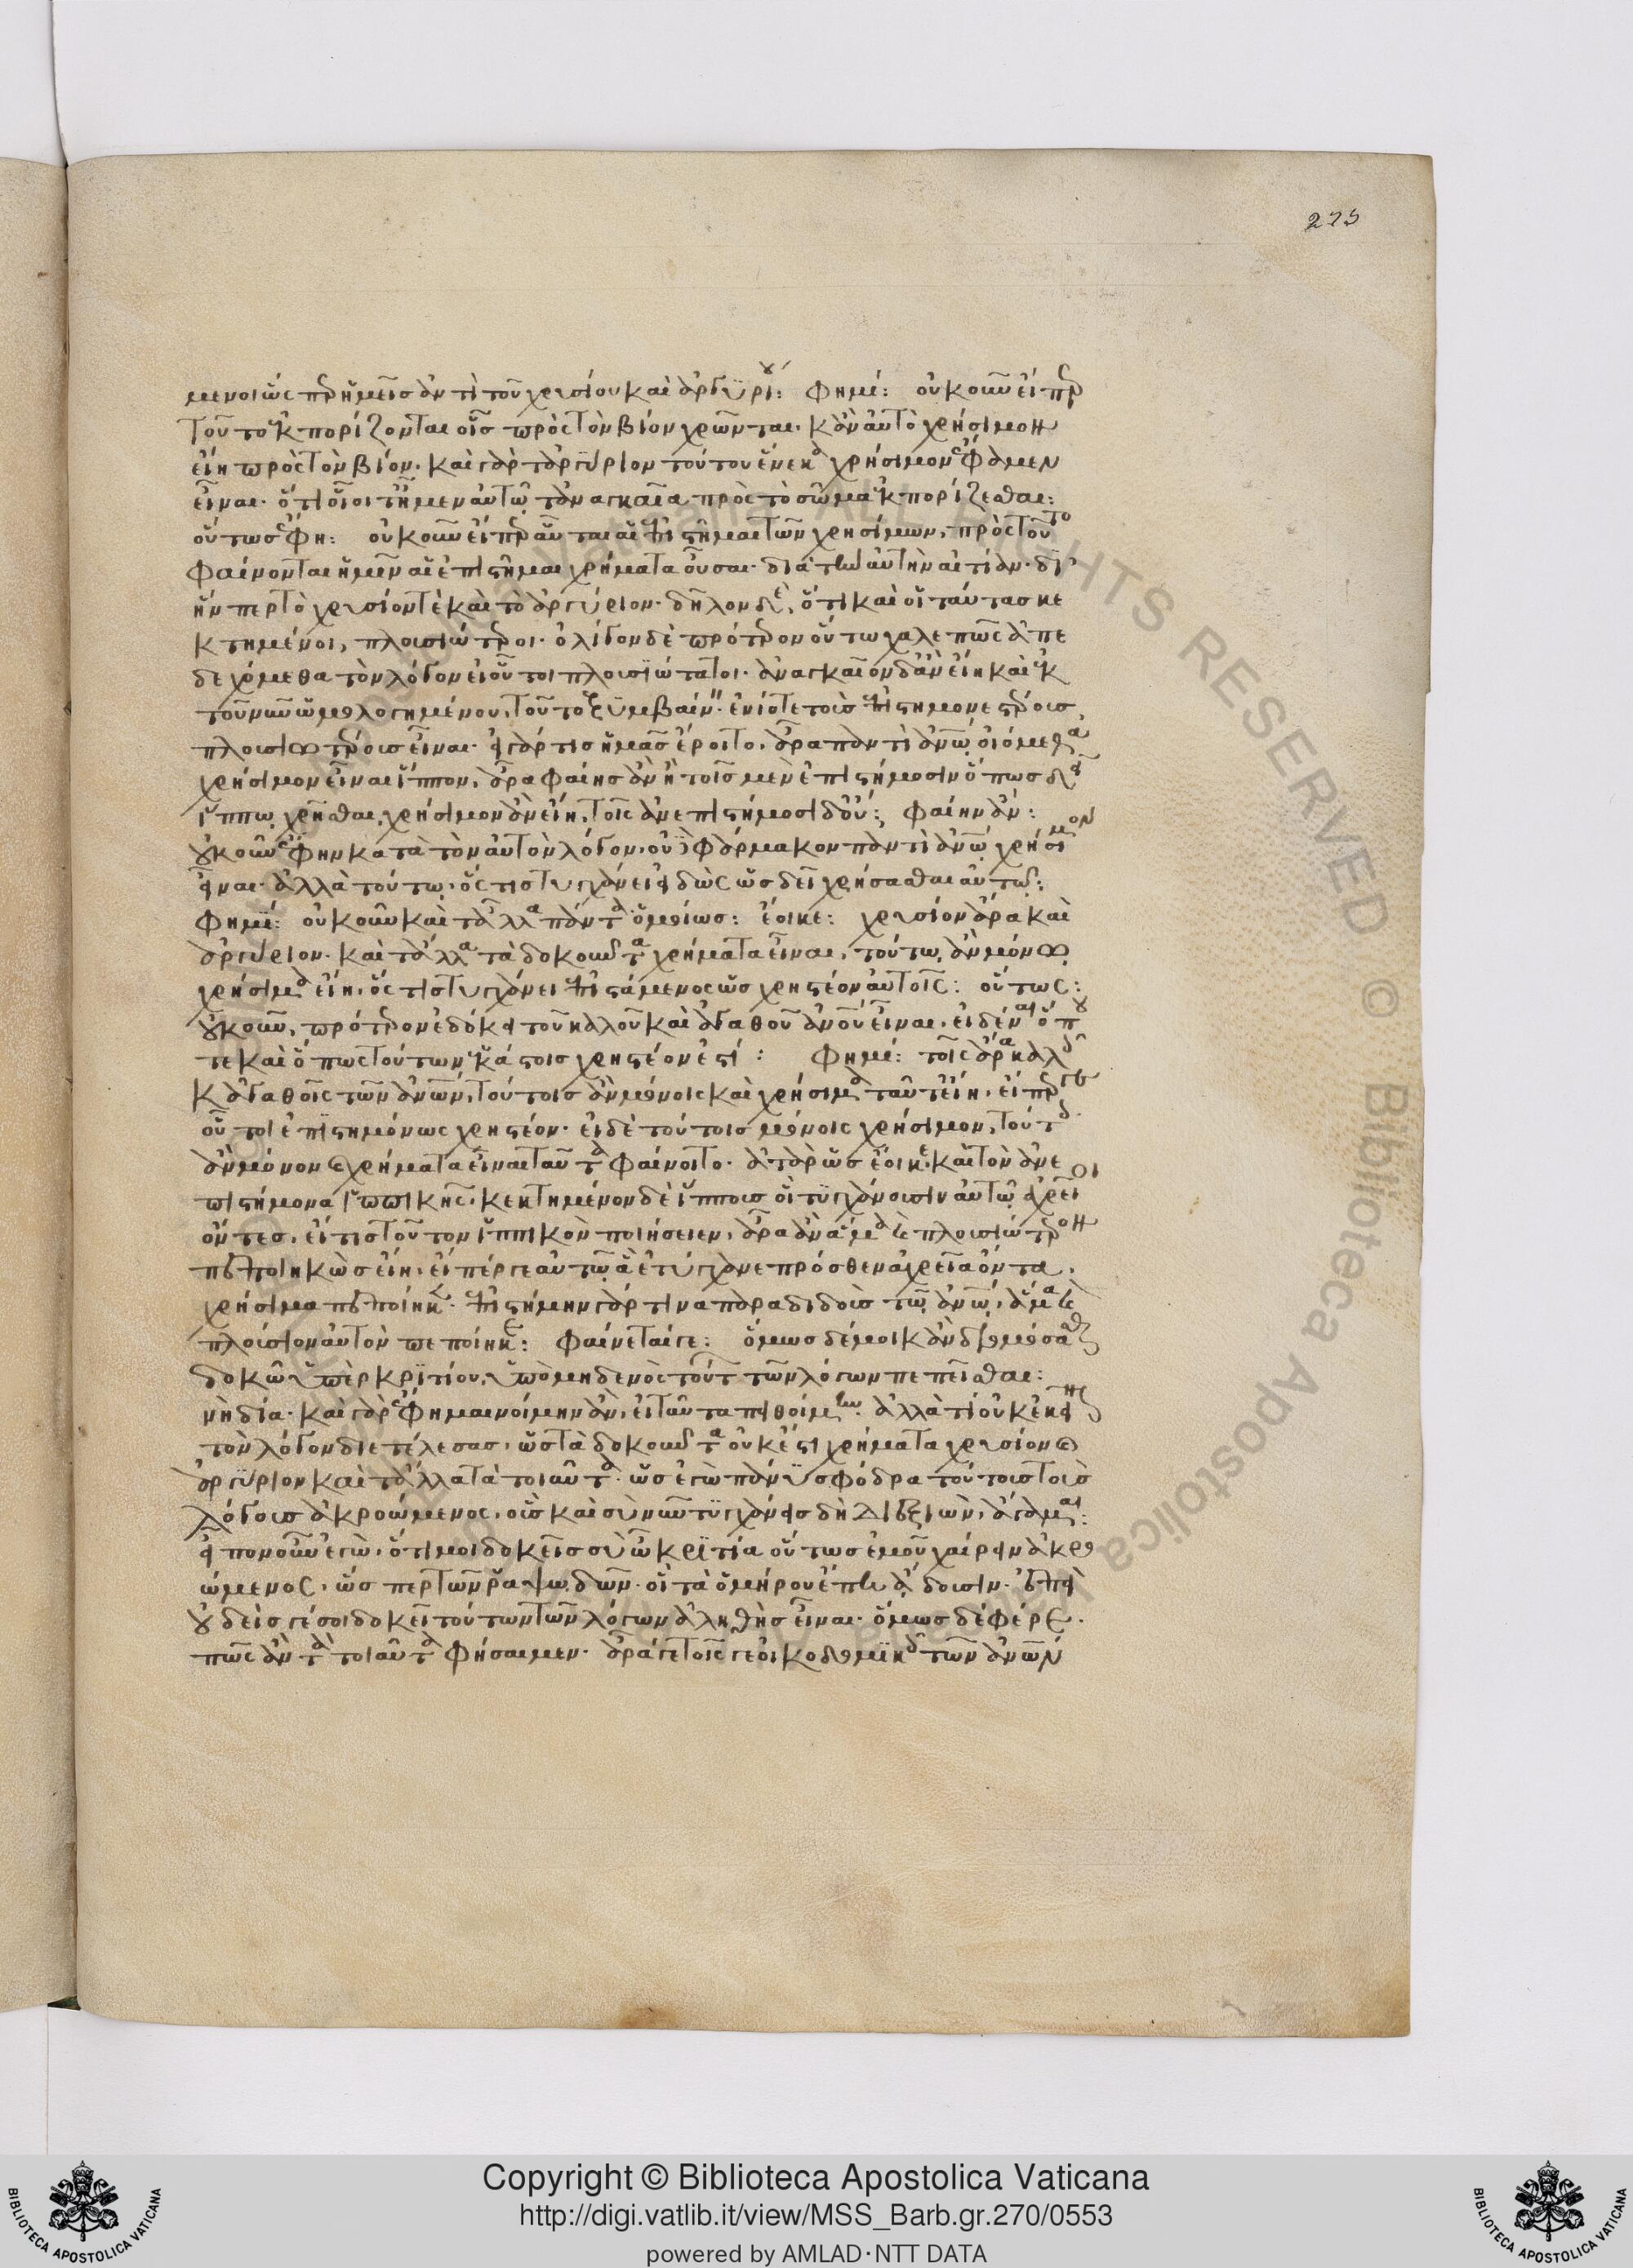 275
μενοι ὥσπερ ἡμεῖς ἀντὶ τοῦ χρυσίου καὶ ἀργυρίου: φημί: οὐκοῦν εἴπερ
τοῦτο ἐκπορίζονται οἷς πρὸς τὸν βίον χρῶνται. κἂν αὐτὸ χρήσιμον
εἴη πρὸς τὸν βίον. καὶ γὰρ τἀργύριον τούτου ἕνεκα χρήσιμον ἔφαμεν
εἶναι. ὅτι οἷοί τ' ἦμεν αὐτῷ τἀναγκαῖα πρὸς τὸ σῶμα ἐκπορίζεσθαι:
οὕτως ἔφη: οὐκοῦν εἴπερ αὗται αἱ ἐπιστῆμαι τῶν χρησίμων, πρὸς τοῦτο
φαίνονται ἡμῖν αἱ ἐπιστῆμαι χρήματα οὖσαι. διὰ τὴν αὐτὴν αἰτίαν. δι'
ἥν περ τὸ χρυσίον τὲ καὶ τὸ ἀργύριον. δῆλον δὲ, ὅτι καὶ οἱ ταύτας κε
κτημένοι, πλουσιώτεροι. ὀλίγον δὲ πρότερον οὕτω χαλεπῶς ἀπε
δεχόμεθα τὸν λόγον εἰ οὗτοι πλουσιώτατοι. ἀναγκαῖον δ' ἂν εἴη καὶ ἐκ
τοῦ νῦν ὡμολογημένου, τοῦτο ξυμβαίνειν. ἐνίοτε τοῖς ἐπιστημονεστέροις
πλουσιωτέροις εἶναι. εἰ γάρ τις ἡμᾶς ἔροιτο. ἆρα παντὶ ἀνῳ οἰόμεθα
χρήσιμον εἶναι ἵππον, ἆρα φαίης ἂν ἢ τοῖς μὲν ἐπιστήμοσιν ὅπως δεῖ
ἵππῳ χρῆσθαι, χρήσιμον ἂν εἴη, τοῖς ἀνεπιστήμοσι δ' οὔ; φαίην ἄν:
οὐκοῦν ἔφην κατὰ τὸν αὐτὸν λόγον. οὐδὲ φάρμακον παντὶ ἀνῳ χρήσιμον
εἶναι. ἀλλὰ τούτῳ. ὅστις τυγχάνει εἰδὼς ὡς δεῖ χρήσασθαι αὐτῷ:
φημί: οὐκοῦν καὶ τἄλλα πάντα ὁμοίως: ἔοικε: χρυσίον ἄρα καὶ
ἀργύριον. καὶ τἄλλα τὰ δοκοῦντα χρήματα εἶναι, τούτῳ ἂν μόνῳ
χρήσιμα εἴη. ὅστις τυγχάνει ἐπιστάμενος ὡς χρηστέον αὐτοῖς: οὕτως:
οὐκοῦν, πρότερον ἐδόκει τοῦ καλοῦ καὶ ἀγαθοῦ ἀνοῦ εἶναι. εἰδέναι ὅπου
τε καὶ ὅπως τούτων ἑκάστοις χρηστέον ἐστί: φημί: τοῖς ἄρα καλοῖς
κἀγαθοῖς τῶν ἀνων, τούτοις ἂν μόνοις καὶ χρήσιμα ταῦτ' εἴη. εἴπερ γε
οὗτοι ἐπιστημόνως χρηστέον. εἰ δὲ τούτοις μόνοις χρήσιμον, τούτοις
ἂν μόνον καὶ χρήματα εἶναι ταῦτα φαίνοιτο. ἀτὰρ ὡς ἔοικε. καὶ τὸν ἀνε
πιστήμονα ἱππικῆς. κεκτημένον δὲ ἵππους οἳ τυγχάνουσιν αὐτῷ ἀχρεῖοι
ὄντες. εἴ τις τοῦτον ἱππικὸν ποιήσειεν. ἆρα ἂν ἅμα καὶ πλουσιώτερον
πεποιηκὼς εἴη. εἴπέρ γε αὐτῷ ἃ ἐτύγχανε πρόσθεν ἀχρεῖα ὄντα.
χρήσιμα πεποίηκε. ἐπιστήμην γάρ τινα παραδιδοὺς τῷ ἀνῳ, ἅμα καὶ
πλούσιον αὐτὸν πεποίηκε: φαίνεταί γε: ὅμως δέ μοι κἂν διομόσασθαι
δοκῶ ὑπὲρ κριτίου, ὑπὸ μηδενὸς τούτων τῶν λόγων πεπεῖσθαι:
νὴ δία. καὶ γὰρ ἔφη μαινοίμην ἄν, εἰ ταῦτα πειθοίμην. ἀλλὰ τί οὐκ ἐκεῖ
τὸν λόγον διετέλεσας, ὡς τὰ δοκοῦντα οὐκ ἔστι χρήματα χρυσίον καὶ
ἀργύριον καὶ τἄλλα τὰ τοιαῦτα. ὡς ἐγὼ πάνυ σφόδρα τούτοις τοῖς
λόγοις ἀκροώμενος, οἷς καὶ σὺ νῦν τυγχάνεις δὴ διεξιὼν, ἄγαμαι:
εἶπον οὖν ἐγὼ. ὅτι μοι δοκεῖς σὺ ὦ κριτία οὕτως ἐμοῦ χαίρειν ἀκρο
ώμενος, ὥσπερ τῶν ῥαψῳδῶν. οἳ τὰ ὁμήρου ἔπη ᾄδουσιν. ἐπεὶ
οὐδείς γέ σοι δοκεῖ τούτων τῶν λόγων ἀληθὴς εἶναι. ὅμως δὲ φέρε.
πῶς ἂν τὰ τοιαῦτα φήσαιμεν. ἆρά γε τοῖς γε οἰκοδομικοῖς τῶν ἀνων
Copyright © Biblioteca Apostolica Vaticana
http://digi.vatlib.it/view/MSS_Barb.gr.270/0553
powered by AMLAD·NTT DATA
BIBLIOTECA APOSTOLICA VATICANA
BIBLIOTECA APOSTOLICA VATICANA